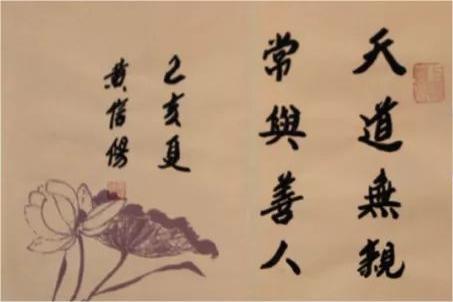 天道無親
常與善人
乙亥夏
黄信陽